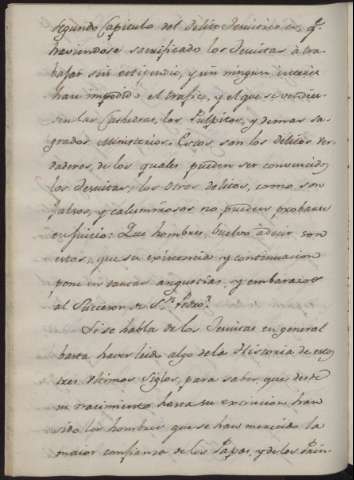 segundo Capitulo del delito Jesuitico es, qe.
haviendose sacrificado los Jesuitas à tra-
bajar sin estipendio, y sin ningun interes
han impedido el trafico, y el que se vendie-
sen las Cathedras, los Pulpitos, y demas sa-
grados Ministerios. Estos, son los delitos ver-
daderos, de los quales pueden ser convencidos
los Jesuitas; los otros delitos, como son
falsos, y calumniosos no pueden probarse
en Juicio: Que hombres, buelvo à decir son
estos, que su existencia y continuacion
pone en tantas angustias, y embarazos
al Succesor de Sn. Pedro?
Si se habla de los Jesuitas en general
basta haver leido algo de la Historia de estos
tres ultimos Siglos, para saber que desde
su nacimiento hasta su extincion han
sido los hombres que se han merecido la
maior confianza de los Papas, y de los Prin-